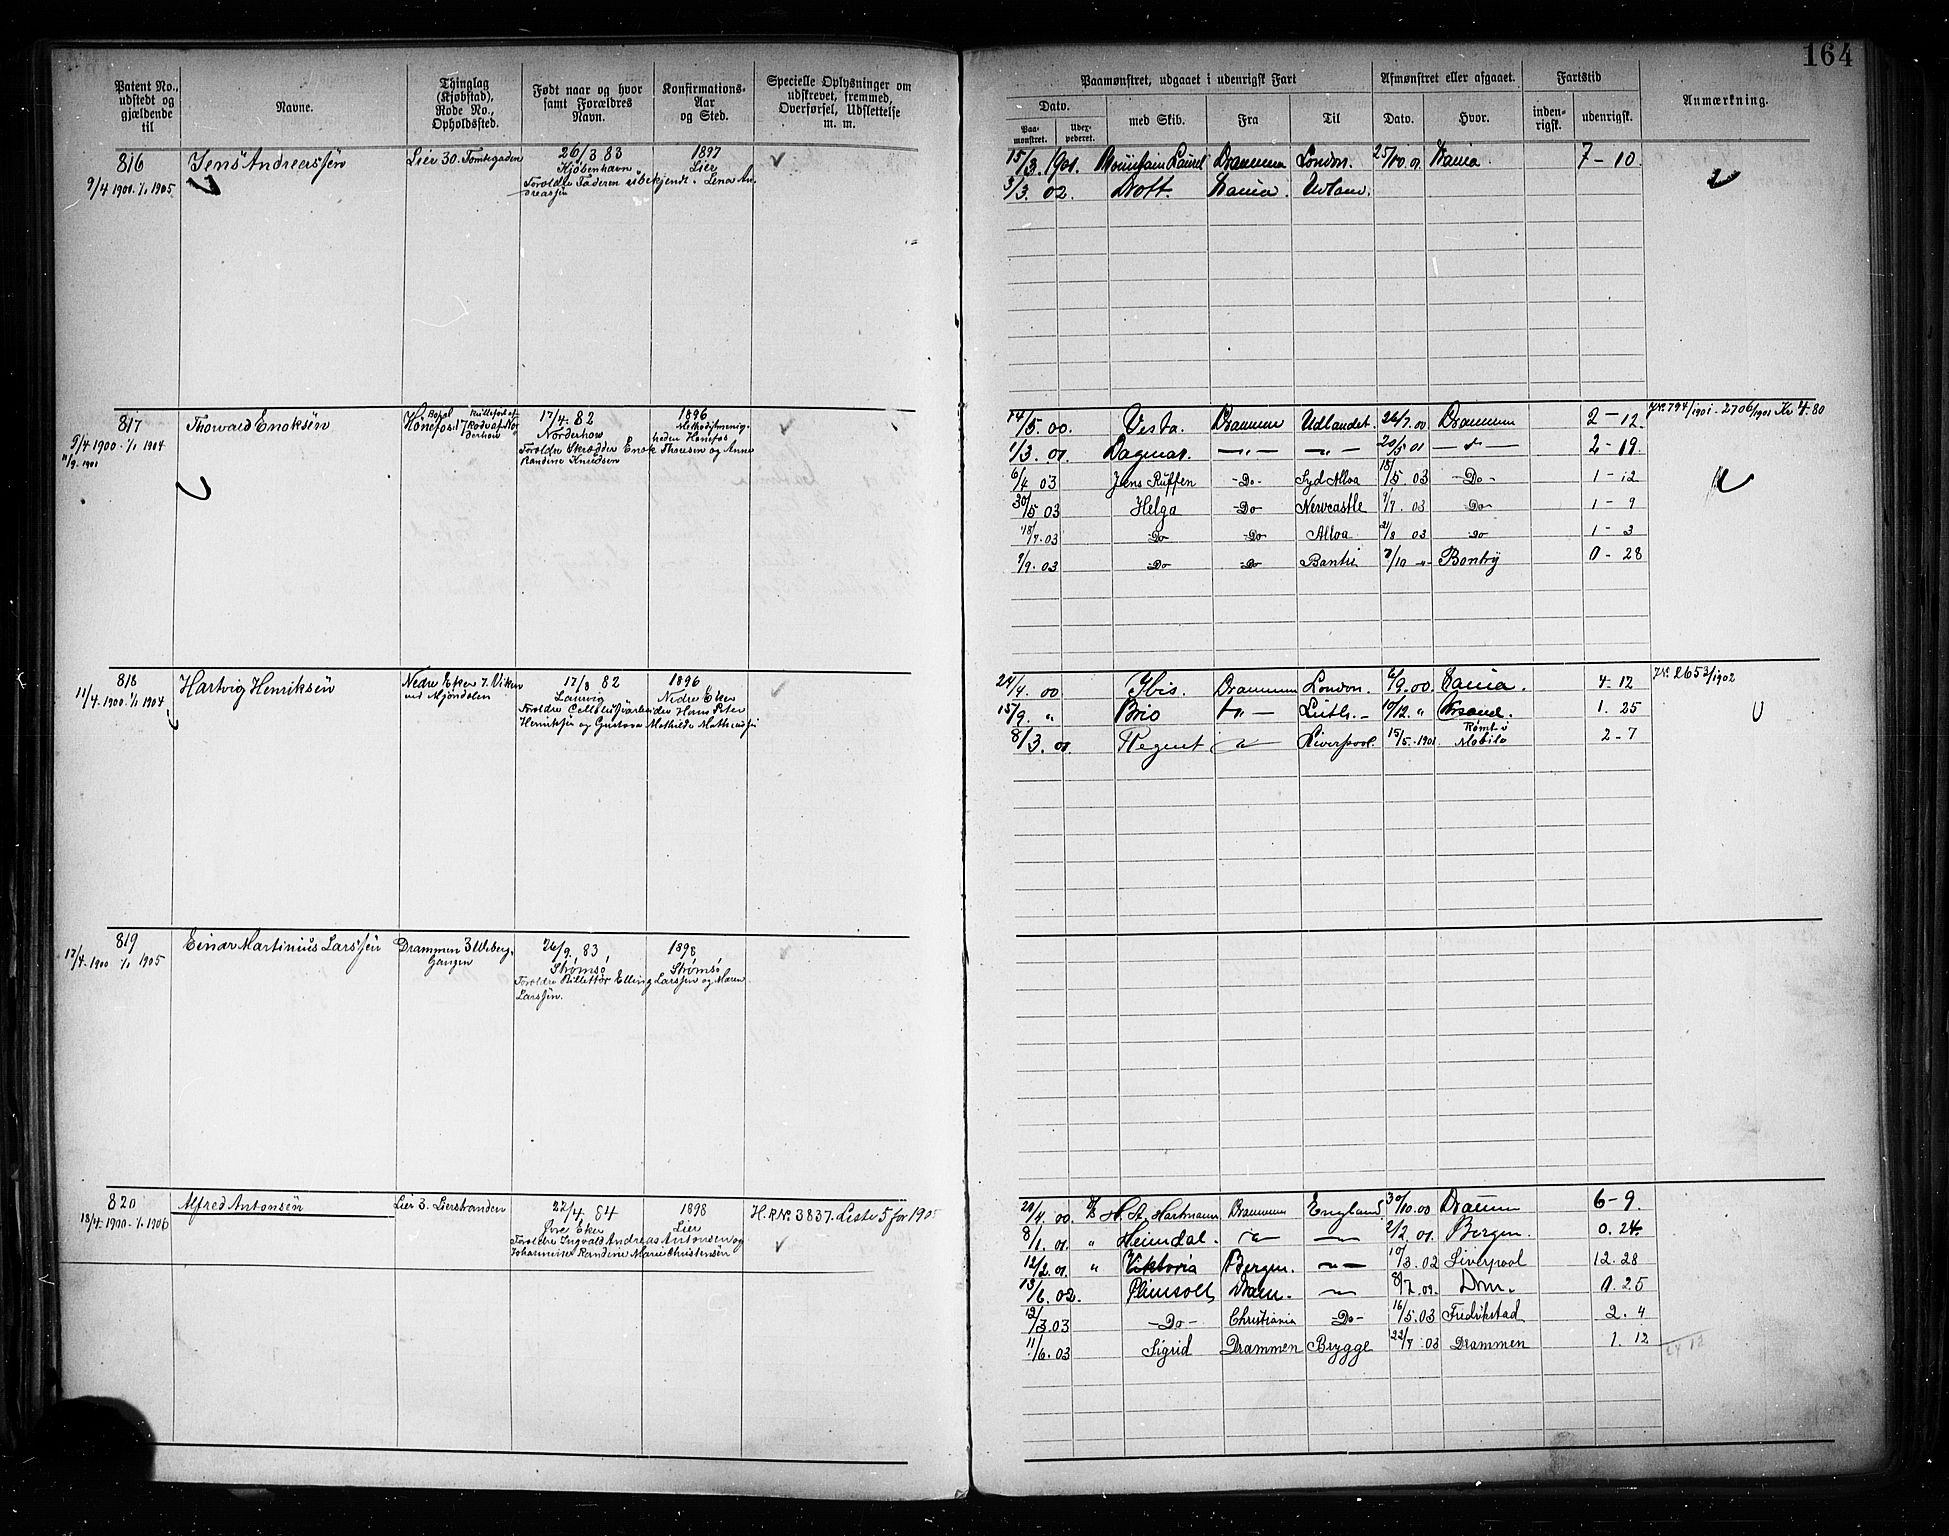 164
Patent No., udstedt og gjældende til
Navne.
Thinglag (Kjøbstad), Rode No., Opholdssted.
Født naar og hvor samt Forældres Navn.
Konfirmations- Aar og Sted.
Specielle Oplysninger om udskrevet, fremmed, Overførsel, Udslettelse m. m.
Paamønstret, udgaaet i udenrigsk Fart
Afmønstret eller afgaaet.
Fartstid
Anmærkning.
Dato.
Paa- mønstret.
Uder- pederet.
med Skib.
Fra
Til
Dato.
Hvor.
inden- rigsk.
udenrigsk.
816
9/4 1900. 1/1 1905
Jens Andreassen
Lier 30. Tomtegaden
26/3 83
Kjøbenhavn
Foroldre Faderen ubekjendt. Lena An-
dreassen
1897
Lier
15/3. 1901. Mountain Laurel Drammen London. 25/10 01 Dania. 7-10.
3/3. 02. Drott. Dania. Udland.
817
9/4 1900. 1/1 1904
11/9. 1901
Thorvald Enoksen
Hönefos
17/4. 82
Norderhov
Foroldre Skrædder Enok Thoresen og Anne
Randine Knudsen
1896
Methodistmenig-
heden Hönefos
14/5. 00. Vesta. Drammen Udlandet 26/7. 00 Drammen 2-12.
JN. 794/1901. 2706/1901 Kr 4.80
1/3. 01. Dagmar. —"— —"— 20/5 01 —"— 2-19.
6/4 03 Jens Ruffen -Do- Syd Alloa 18/5 03 -Do- 1-12
30/5 03 Helga -Do- Newcastle 9/7. 03 Do 1-9
18/7. 03 -Do- -Do- Alloa 21/8 03 -Do- 1-3
9/9. 03 -Do- -Do- Bantri 7/10 -"- Bantry 0-28
818
11/4. 1900. 1/1 1904
Hartvig Henriksen
Nedre Eker 7. Viken
ved Mjöndalen
17/8 82
Laurvig
Foroldre Cellulosearbeider Hans Peter
Henriksen og Gustava Mathilde Mathisen
1896
Nedre Eker
24/4. 00 Ibis. Drammen London. 6/9. 00 Dania. 4-12
JN. 2653/1902
15/9. " Brio —"— Leith. 10/12. " Krsand. 1. 25
8/3. 01. Regent —"— Liverpool. 15/5. 1901. Rømt i Mobile 2-7
819
17/4. 1900 1/1 1905
Einar Martinius Larssen
Drammen 3 Weberg-
Gangen
26/9. 83
Strømsø
Foroldre Billettör Elling Larssen og Maren
Larssen.
1898
Strømsø
820
18/4. 1900. 1/1. 1906
Alfred Antonsen
Lier 3. Lierstranden
22/4. 84
Øvre Eker
Foroldre Ingvald Andreas Antonsen og
Johannine Randine Marie Christensen
1898
Lier
H.RN. 3837. Liste 5 for 1905
20/4. 00. D/S H. A. Hartmann Drammen England 30/10. 00 Dramm 6-9.
8/1. 01. " Heimdal. —"— —"— 2/2. 01. Bergen. 0. 24.
12/2. 01. " Viktoria Bergen. —"— 10/3. 02 Liverpool 12. 28
13/6. 02. Plimsoll Dram. —"— 8/7. 02. Dm. 0. 25
12/3. 03 -Do- Christiania -Do- 16/5. 03 Fredrikstad 2. 4
11/6. 03 Sigrid Drammen Brygge 22/7 03 Drammen 1. 12